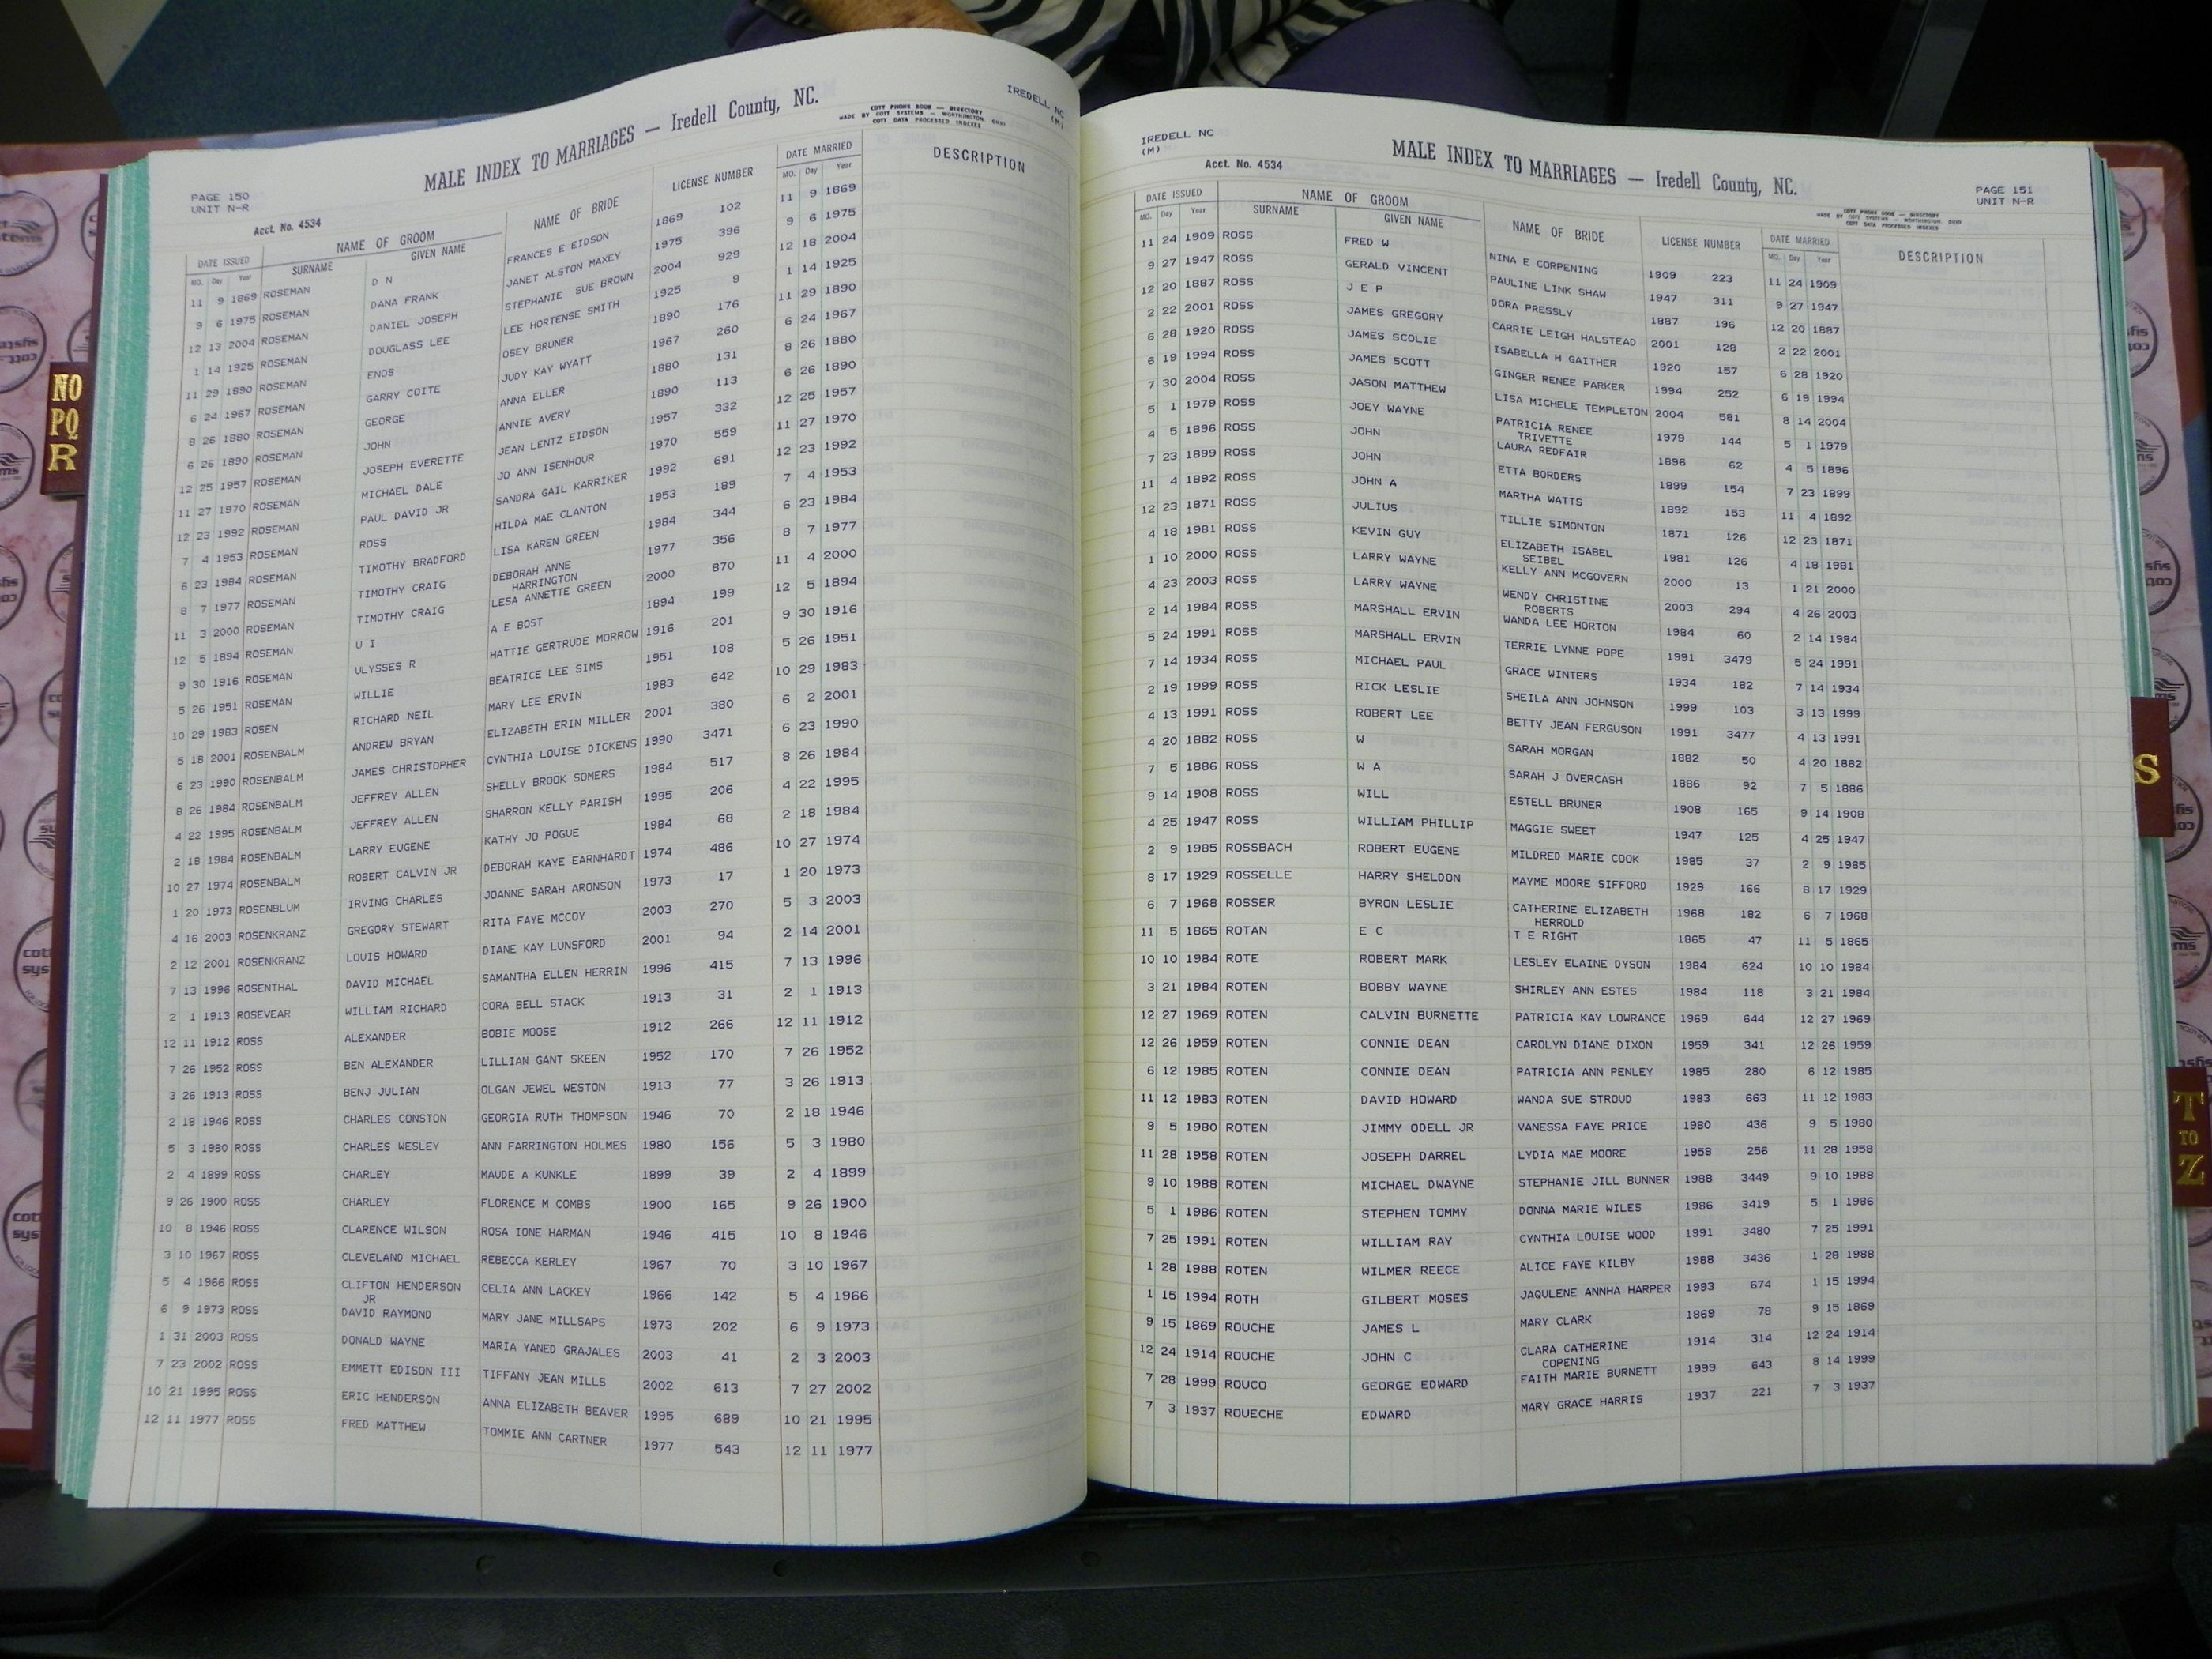 PAGE 150
UNIT N-R
MALE INDEX TO MARRIAGES — Iredell County, NC.
COTT PHONE BOOK — DIRECTORY
MADE BY COTT SYSTEMS — WORTHINGTON, OHIO
COTT DATA PROCESSED INDEXES
IREDELL NC
(M)
Acct. No. 4534
DATE ISSUED NAME OF GROOM NAME OF BRIDE LICENSE NUMBER DATE MARRIED DESCRIPTION
MO. Day Year SURNAME GIVEN NAME MO. Day Year
11 9 1869 ROSEMAN D N FRANCES E EIDSON 1869 102 11 9 1869
9 6 1975 ROSEMAN DANA FRANK JANET ALSTON MAXEY 1975 396 9 6 1975
12 13 2004 ROSEMAN DANIEL JOSEPH STEPHANIE SUE BROWN 2004 929 12 18 2004
1 14 1925 ROSEMAN DOUGLASS LEE LEE HORTENSE SMITH 1925 9 1 14 1925
11 29 1890 ROSEMAN ENOS OSEY BRUNER 1890 176 11 29 1890
6 24 1967 ROSEMAN GARRY COITE JUDY KAY WYATT 1967 260 6 24 1967
8 26 1880 ROSEMAN GEORGE ANNA ELLER 1880 131 8 26 1880
6 26 1890 ROSEMAN JOHN ANNIE AVERY 1890 113 6 26 1890
12 25 1957 ROSEMAN JOSEPH EVERETTE JEAN LENTZ EIDSON 1957 332 12 25 1957
11 27 1970 ROSEMAN MICHAEL DALE JO ANN ISENHOUR 1970 559 11 27 1970
12 23 1992 ROSEMAN PAUL DAVID JR SANDRA GAIL KARRIKER 1992 691 12 23 1992
7 4 1953 ROSEMAN ROSS HILDA MAE CLANTON 1953 189 7 4 1953
6 23 1984 ROSEMAN TIMOTHY BRADFORD LISA KAREN GREEN 1984 344 6 23 1984
8 7 1977 ROSEMAN TIMOTHY CRAIG DEBORAH ANNE 1977 356 8 7 1977
HARRINGTON
11 3 2000 ROSEMAN TIMOTHY CRAIG LESA ANNETTE GREEN 2000 870 11 4 2000
12 5 1894 ROSEMAN U I A E BOST 1894 199 12 5 1894
9 30 1916 ROSEMAN ULYSSES R HATTIE GERTRUDE MORROW 1916 201 9 30 1916
5 26 1951 ROSEMAN WILLIE BEATRICE LEE SIMS 1951 108 5 26 1951
10 29 1983 ROSEN RICHARD NEIL MARY LEE ERVIN 1983 642 10 29 1983
5 18 2001 ROSENBALM ANDREW BRYAN ELIZABETH ERIN MILLER 2001 380 6 2 2001
6 23 1990 ROSENBALM JAMES CHRISTOPHER CYNTHIA LOUISE DICKENS 1990 3471 6 23 1990
8 26 1984 ROSENBALM JEFFREY ALLEN SHELLY BROOK SOMERS 1984 517 8 26 1984
4 22 1995 ROSENBALM JEFFREY ALLEN SHARRON KELLY PARISH 1995 206 4 22 1995
2 18 1984 ROSENBALM LARRY EUGENE KATHY JO POGUE 1984 68 2 18 1984
10 27 1974 ROSENBALM ROBERT CALVIN JR DEBORAH KAYE EARNHARDT 1974 486 10 27 1974
1 20 1973 ROSENBLUM IRVING CHARLES JOANNE SARAH ARONSON 1973 17 1 20 1973
4 16 2003 ROSENKRANZ GREGORY STEWART RITA FAYE MCCOY 2003 270 5 3 2003
2 12 2001 ROSENKRANZ LOUIS HOWARD DIANE KAY LUNSFORD 2001 94 2 14 2001
7 13 1996 ROSENTHAL DAVID MICHAEL SAMANTHA ELLEN HERRIN 1996 415 7 13 1996
2 1 1913 ROSEVEAR WILLIAM RICHARD CORA BELL STACK 1913 31 2 1 1913
12 11 1912 ROSS ALEXANDER BOBIE MOOSE 1912 266 12 11 1912
7 26 1952 ROSS BEN ALEXANDER LILLIAN GANT SKEEN 1952 170 7 26 1952
3 26 1913 ROSS BENJ JULIAN OLGAN JEWEL WESTON 1913 77 3 26 1913
2 18 1946 ROSS CHARLES CONSTON GEORGIA RUTH THOMPSON 1946 70 2 18 1946
5 3 1980 ROSS CHARLES WESLEY ANN FARRINGTON HOLMES 1980 156 5 3 1980
2 4 1899 ROSS CHARLEY MAUDE A KUNKLE 1899 39 2 4 1899
9 26 1900 ROSS CHARLEY FLORENCE M COMBS 1900 165 9 26 1900
10 8 1946 ROSS CLARENCE WILSON ROSA IONE HARMAN 1946 415 10 8 1946
3 10 1967 ROSS CLEVELAND MICHAEL REBECCA KERLEY 1967 70 3 10 1967
5 4 1966 ROSS CLIFTON HENDERSON CELIA ANN LACKEY 1966 142 5 4 1966
JR
6 9 1973 ROSS DAVID RAYMOND MARY JANE MILLSAPS 1973 202 6 9 1973
1 31 2003 ROSS DONALD WAYNE MARIA YANED GRAJALES 2003 41 2 3 2003
7 23 2002 ROSS EMMETT EDISON III TIFFANY JEAN MILLS 2002 613 7 27 2002
10 21 1995 ROSS ERIC HENDERSON ANNA ELIZABETH BEAVER 1995 689 10 21 1995
12 11 1977 ROSS FRED MATTHEW TOMMIE ANN CARTNER 1977 543 12 11 1977
IREDELL NC
(M)
Acct. No. 4534
MALE INDEX TO MARRIAGES — Iredell County, NC.
PAGE 151
UNIT N-R
COTT PHONE BOOK — DIRECTORY
MADE BY COTT SYSTEMS — WORTHINGTON, OHIO
COTT DATA PROCESSED INDEXES
DATE ISSUED NAME OF GROOM NAME OF BRIDE LICENSE NUMBER DATE MARRIED DESCRIPTION
MO. Day Year SURNAME GIVEN NAME MO. Day Year
11 24 1909 ROSS FRED W NINA E CORPENING 1909 223 11 24 1909
9 27 1947 ROSS GERALD VINCENT PAULINE LINK SHAW 1947 311 9 27 1947
12 20 1887 ROSS J E P DORA PRESSLY 1887 196 12 20 1887
2 22 2001 ROSS JAMES GREGORY CARRIE LEIGH HALSTEAD 2001 128 2 22 2001
6 28 1920 ROSS JAMES SCOLIE ISABELLA H GAITHER 1920 157 6 28 1920
6 19 1994 ROSS JAMES SCOTT GINGER RENEE PARKER 1994 252 6 19 1994
7 30 2004 ROSS JASON MATTHEW LISA MICHELE TEMPLETON 2004 581 8 14 2004
5 1 1979 ROSS JOEY WAYNE PATRICIA RENEE 1979 144 5 1 1979
TRIVETTE
4 5 1896 ROSS JOHN LAURA REDFAIR 1896 62 4 5 1896
7 23 1899 ROSS JOHN ETTA BORDERS 1899 154 7 23 1899
11 4 1892 ROSS JOHN A MARTHA WATTS 1892 153 11 4 1892
12 23 1871 ROSS JULIUS TILLIE SIMONTON 1871 126 12 23 1871
4 18 1981 ROSS KEVIN GUY ELIZABETH ISABEL 1981 126 4 18 1981
SEIBEL
1 10 2000 ROSS LARRY WAYNE KELLY ANN MCGOVERN 2000 13 1 21 2000
4 23 2003 ROSS LARRY WAYNE WENDY CHRISTINE 2003 294 4 26 2003
ROBERTS
2 14 1984 ROSS MARSHALL ERVIN WANDA LEE HORTON 1984 60 2 14 1984
5 24 1991 ROSS MARSHALL ERVIN TERRIE LYNNE POPE 1991 3479 5 24 1991
7 14 1934 ROSS MICHAEL PAUL GRACE WINTERS 1934 182 7 14 1934
2 19 1999 ROSS RICK LESLIE SHEILA ANN JOHNSON 1999 103 3 13 1999
4 13 1991 ROSS ROBERT LEE BETTY JEAN FERGUSON 1991 3477 4 13 1991
4 20 1882 ROSS W SARAH MORGAN 1882 50 4 20 1882
7 5 1886 ROSS W A SARAH J OVERCASH 1886 92 7 5 1886
9 14 1908 ROSS WILL ESTELL BRUNER 1908 165 9 14 1908
4 25 1947 ROSS WILLIAM PHILLIP MAGGIE SWEET 1947 125 4 25 1947
2 9 1985 ROSSBACH ROBERT EUGENE MILDRED MARIE COOK 1985 37 2 9 1985
8 17 1929 ROSSELLE HARRY SHELDON MAYME MOORE SIFFORD 1929 166 8 17 1929
6 7 1968 ROSSER BYRON LESLIE CATHERINE ELIZABETH 1968 182 6 7 1968
HERROLD
11 5 1865 ROTAN E C T E RIGHT 1865 47 11 5 1865
10 10 1984 ROTE ROBERT MARK LESLEY ELAINE DYSON 1984 624 10 10 1984
3 21 1984 ROTEN BOBBY WAYNE SHIRLEY ANN ESTES 1984 118 3 21 1984
12 27 1969 ROTEN CALVIN BURNETTE PATRICIA KAY LOWRANCE 1969 644 12 27 1969
12 26 1959 ROTEN CONNIE DEAN CAROLYN DIANE DIXON 1959 341 12 26 1959
6 12 1985 ROTEN CONNIE DEAN PATRICIA ANN PENLEY 1985 280 6 12 1985
11 12 1983 ROTEN DAVID HOWARD WANDA SUE STROUD 1983 663 11 12 1983
9 5 1980 ROTEN JIMMY ODELL JR VANESSA FAYE PRICE 1980 436 9 5 1980
11 28 1958 ROTEN JOSEPH DARREL LYDIA MAE MOORE 1958 256 11 28 1958
9 10 1988 ROTEN MICHAEL DWAYNE STEPHANIE JILL BUNNER 1988 3449 9 10 1988
5 1 1986 ROTEN STEPHEN TOMMY DONNA MARIE WILES 1986 3419 5 1 1986
7 25 1991 ROTEN WILLIAM RAY CYNTHIA LOUISE WOOD 1991 3480 7 25 1991
1 28 1988 ROTEN WILMER REECE ALICE FAYE KILBY 1988 3436 1 28 1988
1 15 1994 ROTH GILBERT MOSES JAQULENE ANNHA HARPER 1993 674 1 15 1994
9 15 1869 ROUCHE JAMES L MARY CLARK 1869 78 9 15 1869
12 24 1914 ROUCHE JOHN C CLARA CATHERINE 1914 314 12 24 1914
COPENING
7 28 1999 ROUCO GEORGE EDWARD FAITH MARIE BURNETT 1999 643 8 14 1999
7 3 1937 ROUECHE EDWARD MARY GRACE HARRIS 1937 221 7 3 1937
NO
PQ
R
S
T
TO
Z